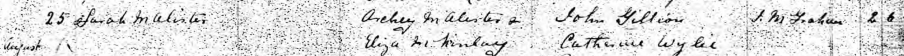 25 Sarah McAlister Archey McAlister & John Gillion J. M. Graham 2 6
August Eliza McKinlay Catherine Wylie